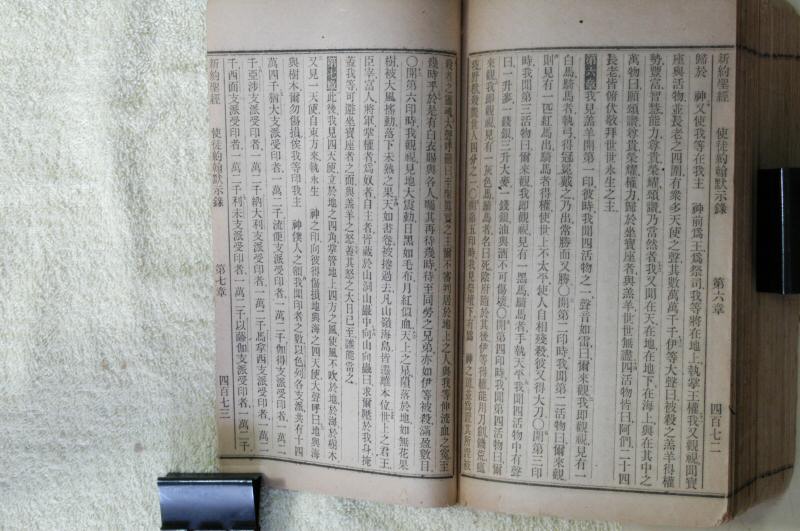 歸於　神又使我等在我主　神前爲王爲祭司我等將在地上執掌王權我又觀看聞寶
座與活物並長老之四圍有衆多天使之聲其數萬萬千千伊等大聲曰被殺之羔羊得權
勢豐富智慧能力尊貴榮耀頌讚乃當然者我又聞在天在地在地下在海上與在其中之
萬物曰願頌讚尊貴榮耀權力歸於坐寶座者與羔羊世世無盡四活物皆曰阿們二十四
長老皆俯伏敬拜世世永生之主
第六章我見羔羊開第一印彼時我聞四活物之一聲音如雷曰爾來觀我即觀視見有一
白馬騎馬者執弓得冠冕戴之乃出常勝而又勝〇開第二印時我聞第二活物曰爾來觀
則見有一匹紅馬出騎馬者得權使世上不太平使人自相殘殺彼又得大刀〇開第三印
時我聞第三活物曰爾來觀我即觀視見有一黑馬騎馬者手執天平我聞四活物中有聲
曰一升麥一錢銀三升大麥一錢銀油與酒不可傷壞〇開第四印時我聞第四活物曰爾
來觀我即觀視見有一灰色馬騎馬者名曰死陰府隨於其後伊等得權能用刀劍饑荒瘟
新約聖經　使徒約翰默示錄　第六章　四百七二
幾時乎於是有白衣賜與各人囑其再待幾時待至同勞之兄弟亦如伊等被殺滿盈數目
〇開第六印時我觀視見地大震動日黑如毛布月紅似血天上之星隕落於地如無花果
樹被大風搖動落下未熟之果天如書卷被捲過去凡山嶺海島皆遷離本位世上之君王
臣宰富人將軍掌權者爲奴者自主者皆藏於山洞山巖中向山向巖曰求爾壓於我身掩
蓋我等可避坐寶座者之面與羔羊之怒蓋其怒之大日已至誰能當之
第七章此後我見四天使立於地之四角掌管地上四方之風使風不吹於地於海於樹木
又見一天使自東方來執永生　神之印向彼得傷損地與海之四天使大聲呼曰地與海
與樹木爾勿傷損俟我等印我主　神僕人之額我聞印者之數以色列各支派共有十四
萬四千猶大支派受印者一萬二千流便支派受印者一萬二千伽得支派受印者一萬二
千亞涉支派受印者一萬二千納大利支派受印者一萬二千馬拿西支派受印者一萬二
千西面支派受印者一萬二千利未支派受印者一萬二千以薩伽支派受印者一萬二千
新約聖經　使徒約翰默示錄　第七章　四百七三